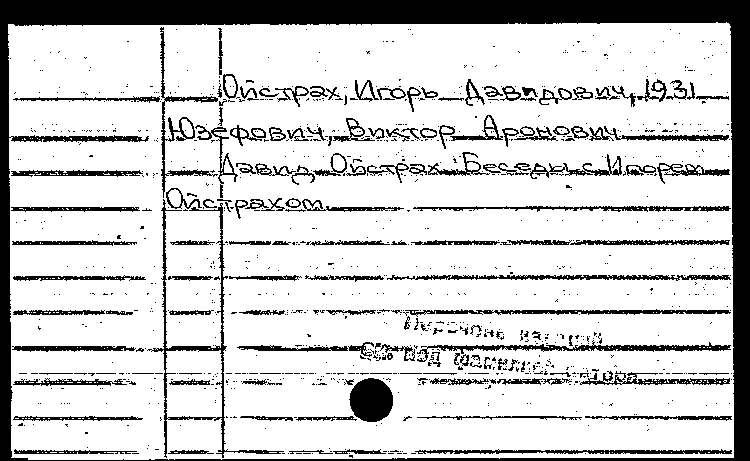 Ойстрах, Игорь Давидович, 1931
Юзефович, Виктор Аронович
Давид Ойстрах: Беседы с Игорем
Ойстрахом.
Перечень изданий
см. под фамилией автора